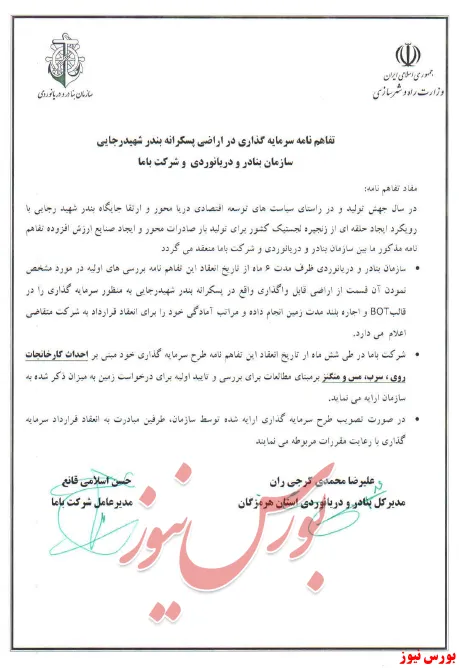 جمهوری اسلامی ایران
وزارت راه و شهرسازی
سازمان بنادر و دریانوردی
تفاهم نامه سرمایه گذاری در اراضی پسکرانه بندر شهیدرجایی
سازمان بنادر و دریانوردی و شرکت باما
مفاد تفاهم نامه:
در سال جهش تولید و در راستای سیاست های توسعه اقتصادی دریا محور و ارتقا جایگاه بندر شهید رجایی با
رویکرد ایجاد حلقه ای از زنجیره لجستیک کشور برای تولید بار صادرات محور و ایجاد صنایع ارزش افزوده تفاهم
نامه مذکور ما بین سازمان بنادر و دریانوردی و شرکت باما منعقد می گردد
• سازمان بنادر و دریانوردی ظرف مدت ۶ ماه از تاریخ انعقاد این تفاهم نامه بررسی های اولیه در مورد مشخص
نمودن آن قسمت از اراضی قابل واگذاری واقع در پسکرانه بندر شهیدرجایی به منظور سرمایه گذاری را در
قالب BOT و اجاره بلند مدت زمین انجام داده و مراتب آمادگی خود را برای انعقاد قرارداد به شرکت متقاضی
اعلام می دارد.
• شرکت باما در طی شش ماه از تاریخ انعقاد این تفاهم نامه طرح سرمایه گذاری خود مبنی بر احداث کارخانجات
روی ، سرب، مس و منگنز برمبنای مطالعات برای بررسی و تایید اولیه برای درخواست زمین به میزان ذکر شده به
سازمان ارایه می نماید.
• در صورت تصویب طرح سرمایه گذاری ارایه شده توسط سازمان، طرفین مبادرت به انعقاد قرارداد سرمایه
گذاری با رعایت مقررات مربوطه می نمایند
علیرضا محمدی کرجی ران
مدیرکل بنادر و دریانوردی استان هرمزگان
حسن اسلامی قانع
مدیرعامل شرکت باما
بورس نیوز
بورس نیوز